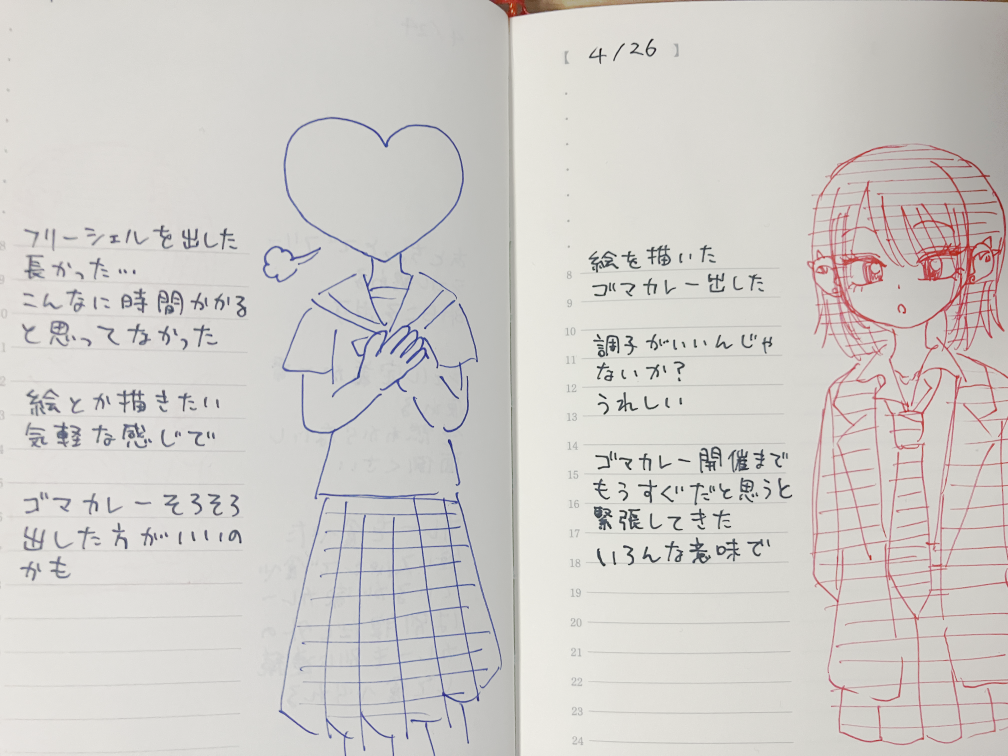 フリーシェルを出した
長かった…
こんなに時間かかる
と思ってなかった
絵とか描きたい
気軽な感じで
ゴマカレーそろそろ
出した方がいいの
かも
【 4/26 】
絵を描いた
ゴマカレー出した
調子がいいんじゃ
ないか?
うれしい
ゴマカレー開催まで
もうすぐだと思うと
緊張してきた
いろんな意味で
8
9
10
11
12
13
14
15
16
17
18
19
20
21
22
23
24